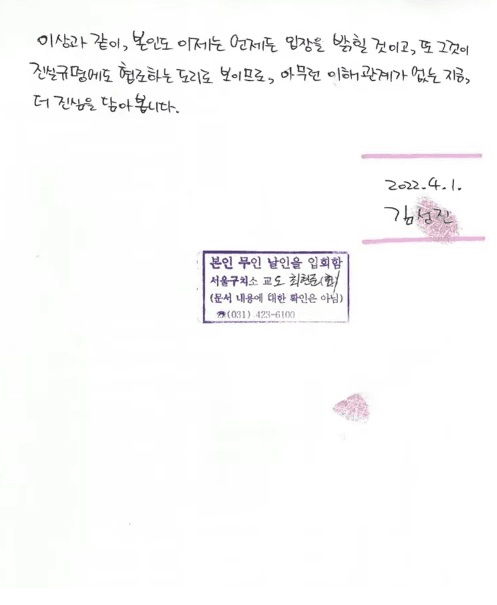 이상과 같이, 본인도 이제는 언제든 입장을 밝힐 것이고, 또 그것이
진실규명에도 협조하는 도리로 보이므로, 아무런 이해관계가 없는 지금,
더 진심을 담아봅니다.
2022.4.1.
김성진
본인 무인 날인을 입회함
서울구치소 교도
(문서 내용에 대한 확인은 아님)
☎(031) 423-6100